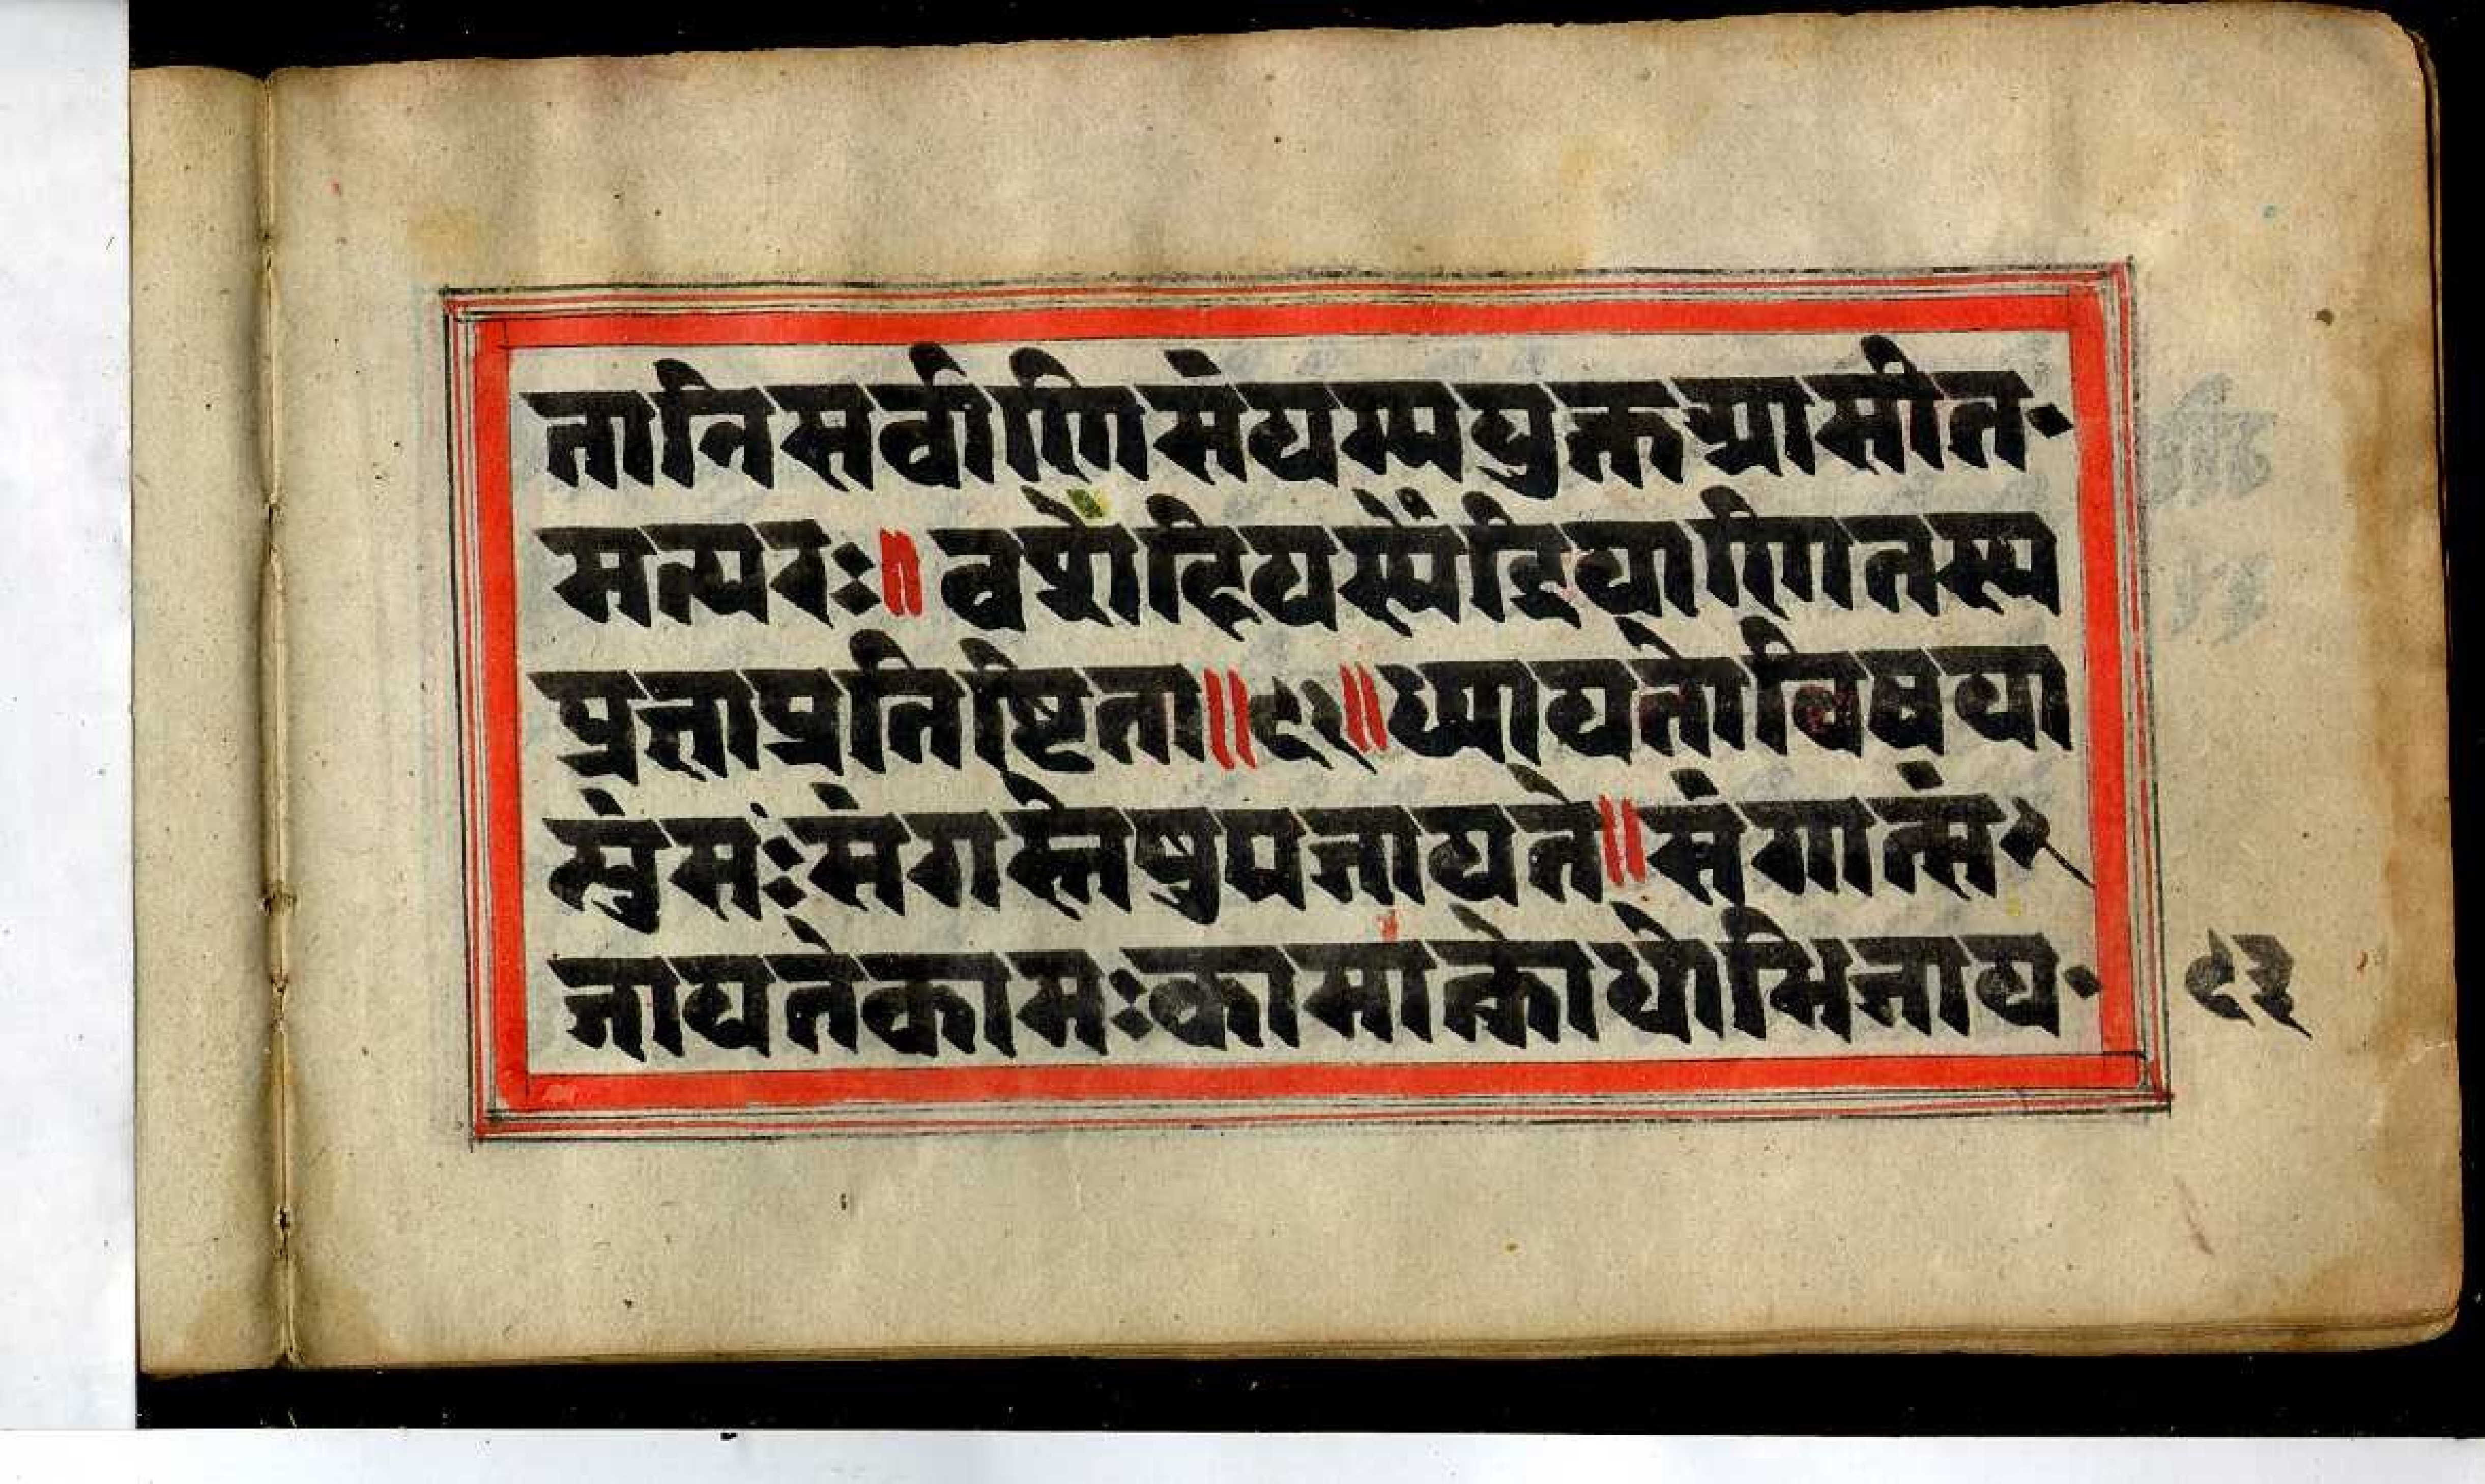 तानिसर्वाणिसंयम्ययुक्तआसीत॰
मत्परः॥वशेहियस्येंद्रियाणितस्य
प्रज्ञाप्रतिष्टिता॥९२॥ध्यायतोविषया
स्पुंसःसंगस्तेषुप्रजायते॥संगात्सं२
जायतेकामःकामांक्रोधोभिजाय॰
९३